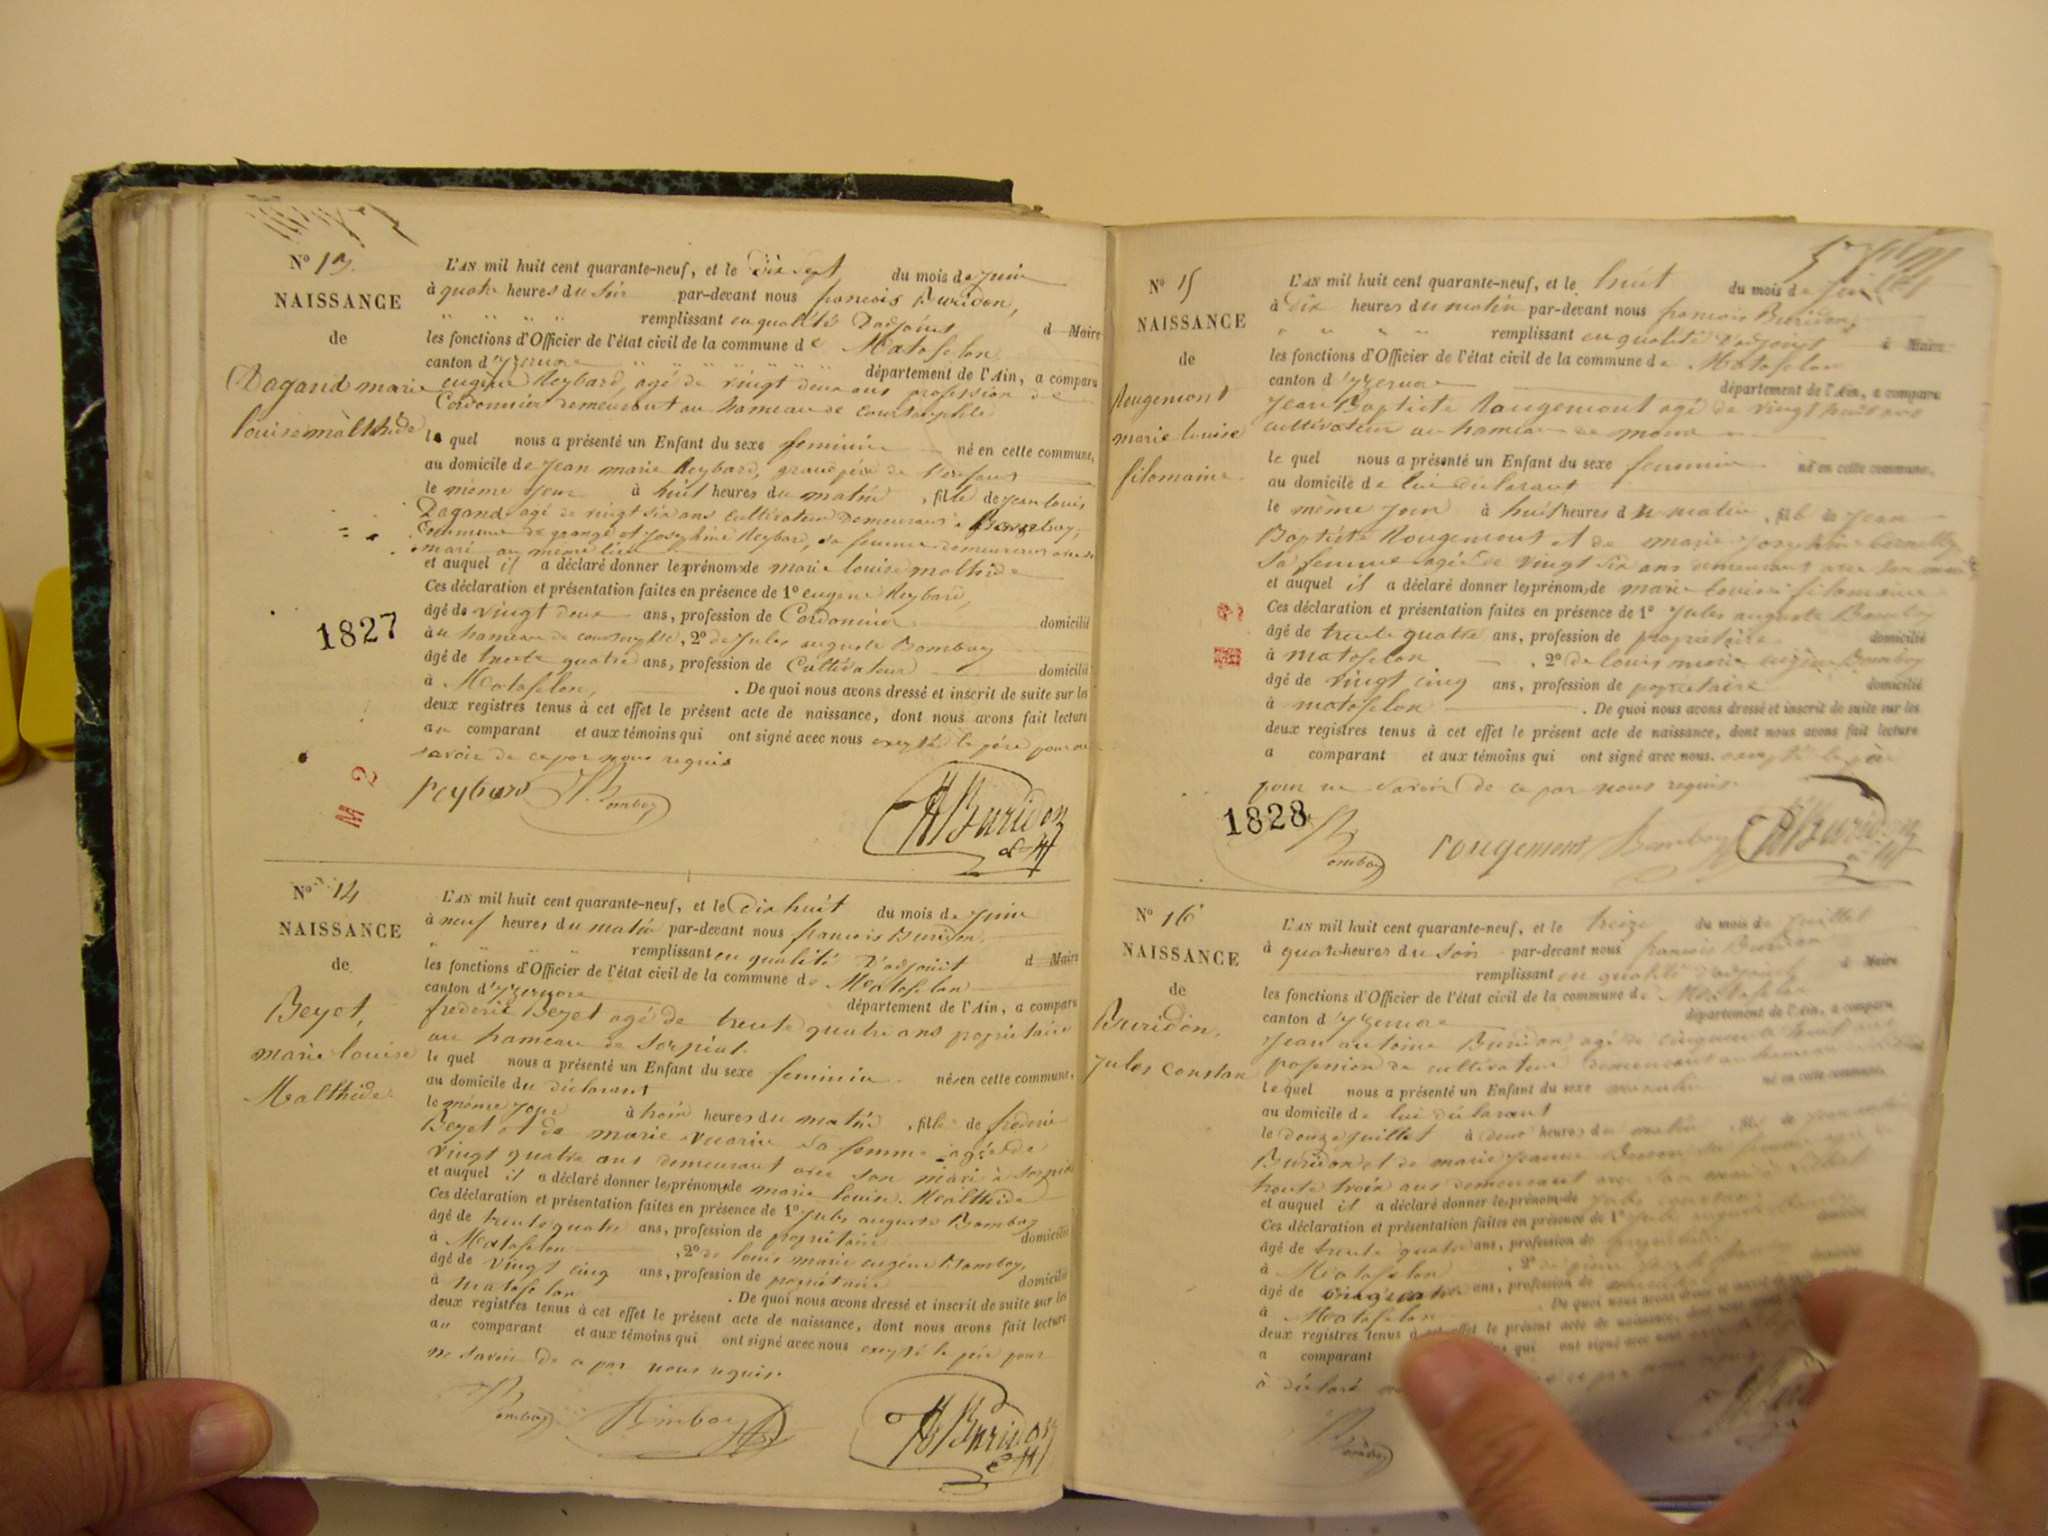 N° 13.
NAISSANCE
de
Dagand marie
louise malthide
L'AN mil huit cent quarante-neuf, et le Dix Sept du mois de juin
à quatre heures du soir par-devant nous francois Buridon,
remplissant en qualité D'adjoint d Maire
les fonctions d'Officier de l'état civil de la commune de Matafelon
canton d'yzernore département de l'Ain, a comparu
eugène Reybard, agé de vingt deux ans profession de
Cordonnier demeurant au hameau de
le quel nous a présenté un Enfant du sexe feminin né en cette commune,
au domicile de jean marie Reybard, grand père de l'enfant
le même jour à huit heures du matin, fille de jean louis
Dagand agé de vingt six ans cultivateur Demeurant à
Commune de grange et Josephine Reybard, sa femme demeurant avec son
mari au même lieu
et auquel il a déclaré donner les prénoms de marie louise malthide
Ces déclaration et présentation faites en présence de 1° eugene Reybard,
âgé de vingt deux ans, profession de Cordonnier domicilié
à au hameau de , 2° de Jules auguste Bomboy
âgé de trente quatre ans, profession de Cultivateur domicilié
à Matafelon, . De quoi nous avons dressé et inscrit de suite sur les
deux registres tenus à cet effet le présent acte de naissance, dont nous avons fait lecture
au comparant et aux témoins qui ont signé avec nous excepté le père pour ne
savoir de ce par nous requis
1827
M 2
reybard Bomboy Buridon
N° 14
NAISSANCE
de
Beyet,
marie louise
Malthide
L'AN mil huit cent quarante-neuf, et le Dix huit du mois de juin
à neuf heures du matin par-devant nous francois Buridon
remplissant en qualité D'adjoint d Maire
les fonctions d'Officier de l'état civil de la commune de Matafelon
canton d'yzernore département de l'Ain, a comparu
frederic Beyet agé de trente quatre ans propriétaire
au hameau de Sorpiat
le quel nous a présenté un Enfant du sexe feminin né en cette commune,
au domicile du déclarant
le même jour à trois heures du matin, fille de frederic
Beyet et de marie sa femme agée de
vingt quatre ans demeurant avec son mari à sorpiat
et auquel il a déclaré donner les prénoms de marie louise Malthide
Ces déclaration et présentation faites en présence de 1° Jules auguste Bomboy
âgé de trente quatre ans, profession de propriétaire domicilié
à Matafelon , 2° de louis marie eugène Bomboy,
âgé de vingt cinq ans, profession de propriétaire domicilié
à Matafelon . De quoi nous avons dressé et inscrit de suite sur les
deux registres tenus à cet effet le présent acte de naissance, dont nous avons fait lecture
au comparant et aux témoins qui ont signé avec nous excepté le père pour
ne savoir de ce par nous requis.
Bomboy Bomboy Buridon
N° 15
NAISSANCE
de
Rougemont
marie louise
filomaine
L'AN mil huit cent quarante-neuf, et le huit du mois de juillet
à Dix heures du matin par-devant nous francois Buridon,
remplissant en qualité d'adjoint d Maire
les fonctions d'Officier de l'état civil de la commune de Matafelon
canton d'yzernore département de l'Ain, a comparu
Jean Baptiste Rougemont agé de vingt huit ans
cultivateur au hameau de
le quel nous a présenté un Enfant du sexe feminin né en cette commune,
au domicile de lui déclarant
le même jour à huit heures du matin, fille de Jean
Baptiste Rougemont et de marie
sa femme agée de vingt six ans demeurant avec son mari
et auquel il a déclaré donner les prénoms de marie louise filomaine
Ces déclaration et présentation faites en présence de 1° Jules auguste Bomboy
âgé de trente quatre ans, profession de propriétaire domicilié
à matafelon , 2° de louis marie eugène Bomboy
âgé de vingt cinq ans, profession de propriétaire domicilié
à matafelon . De quoi nous avons dressé et inscrit de suite sur les
deux registres tenus à cet effet le présent acte de naissance, dont nous avons fait lecture
a comparant et aux témoins qui ont signé avec nous. excepté le père
pour ne savoir de ce par nous requis.
1828
Bomboy rougemont Bomboy Buridon
N° 16
NAISSANCE
de
Buridon,
jules constan
L'AN mil huit cent quarante-neuf, et le treize du mois de juillet
à quatre heures du soir par-devant nous francois Buridon
remplissant en qualité d'adjoint d Maire
les fonctions d'Officier de l'état civil de la commune de Matafelon
canton d'yzernore département de l'Ain, a comparu
Jean antoine Buridon agé de cinquante
profession de cultivateur demeurant au hameau
le quel nous a présenté un Enfant du sexe masculin né en cette commune,
au domicile de lui déclarant
le douze juillet à deux heures du matin, fils de
Buridon et de marie jeanne sa femme
trente trois ans demeurant avec son mari à
et auquel il a déclaré donner les prénoms de jules constan
Ces déclaration et présentation faites en présence de 1° Jules auguste Bomboy
âgé de trente quatre ans, profession de propriétaire domicilié
à Matafelon , 2° de
âgé de ans, profession de
à Matafelon . De quoi nous avons dressé et inscrit de suite sur les
deux registres tenus à cet effet le présent acte de naissance, dont nous avons
a comparant qui ont signé avec nous
à déclaré ce par nous
Bomboy